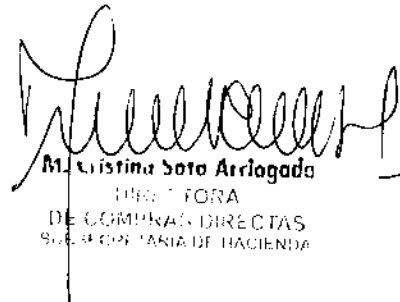 M. Cristina Soto Arriagada
DIRECTORA
DE COMPRAS DIRECTAS
SUBSECRETARIA DE HACIENDA